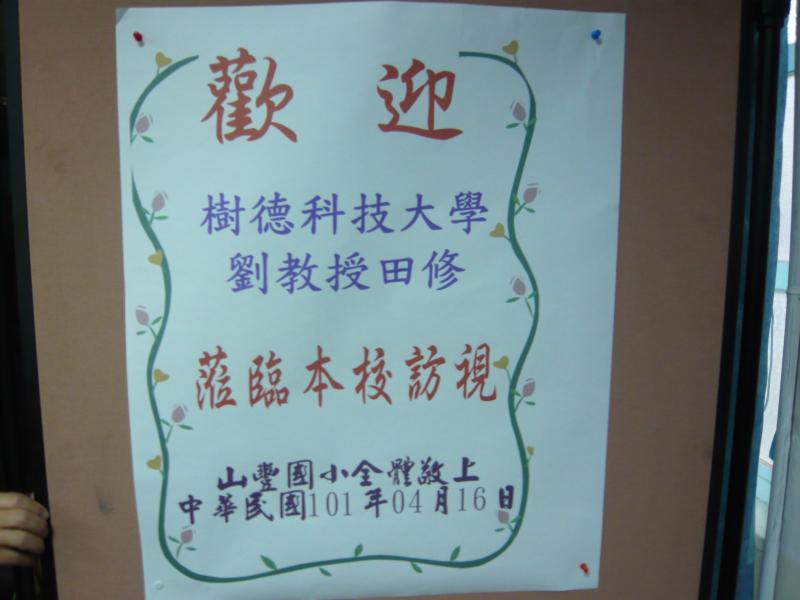 歡迎
樹德科技大學
劉教授田修
蒞臨本校訪視
山豐國小全體敬上
中華民國101年04月16日